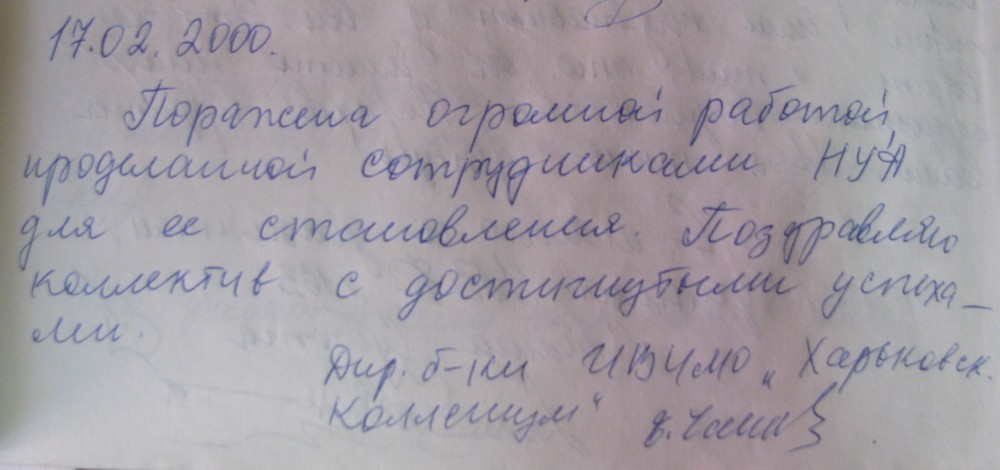 17.02.2000.
Поражена огромной работой,
проделанной сотрудниками НУА
для ее становления. Поздравляю
коллектив с достигнутыми успеха-
ми.
Дир. б-ки „Харьковск.
Коллегиум"